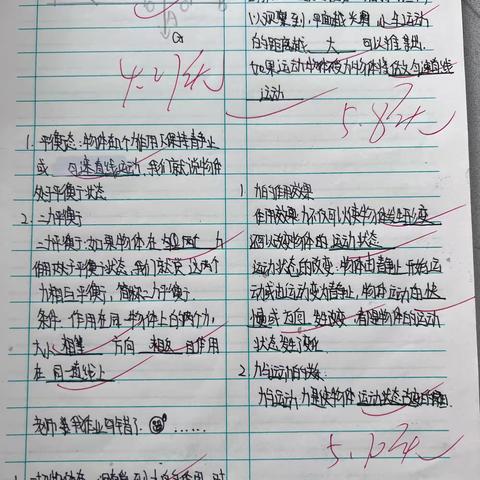 G
4.27
1. 平衡态:物体在几个力作用下保持静止
或 匀速直线运动,我们就说物体
处于平衡状态
2. 二力平衡
二力平衡:如果物体在 力
作用处于平衡状态,我们就说这两个
力相互平衡,简称二力平衡.
条件:作用在同一物体上的两个力,
大小 相等 方向 相反 且作用
在 同一直线上
老师 我作业写错了. ......
以观察到,平面越光滑,小车运动
的距离越 大 可以推理出.
如果运动物体不受力物体将保持匀速直线
运动
5.8
1. 力的作用效果
作用效果:力不仅可以使物体发生形变
还可以改变物体的 运动状态
运动状态的改变:物体由静止开始运
动或由运动变为静止,物体运动的快
慢或 方向 发生改变,都是物体的运动
状态发生了变化
2. 力与运动的关系
力与运动:力是使物体 运动状态改变的原因.
5.12